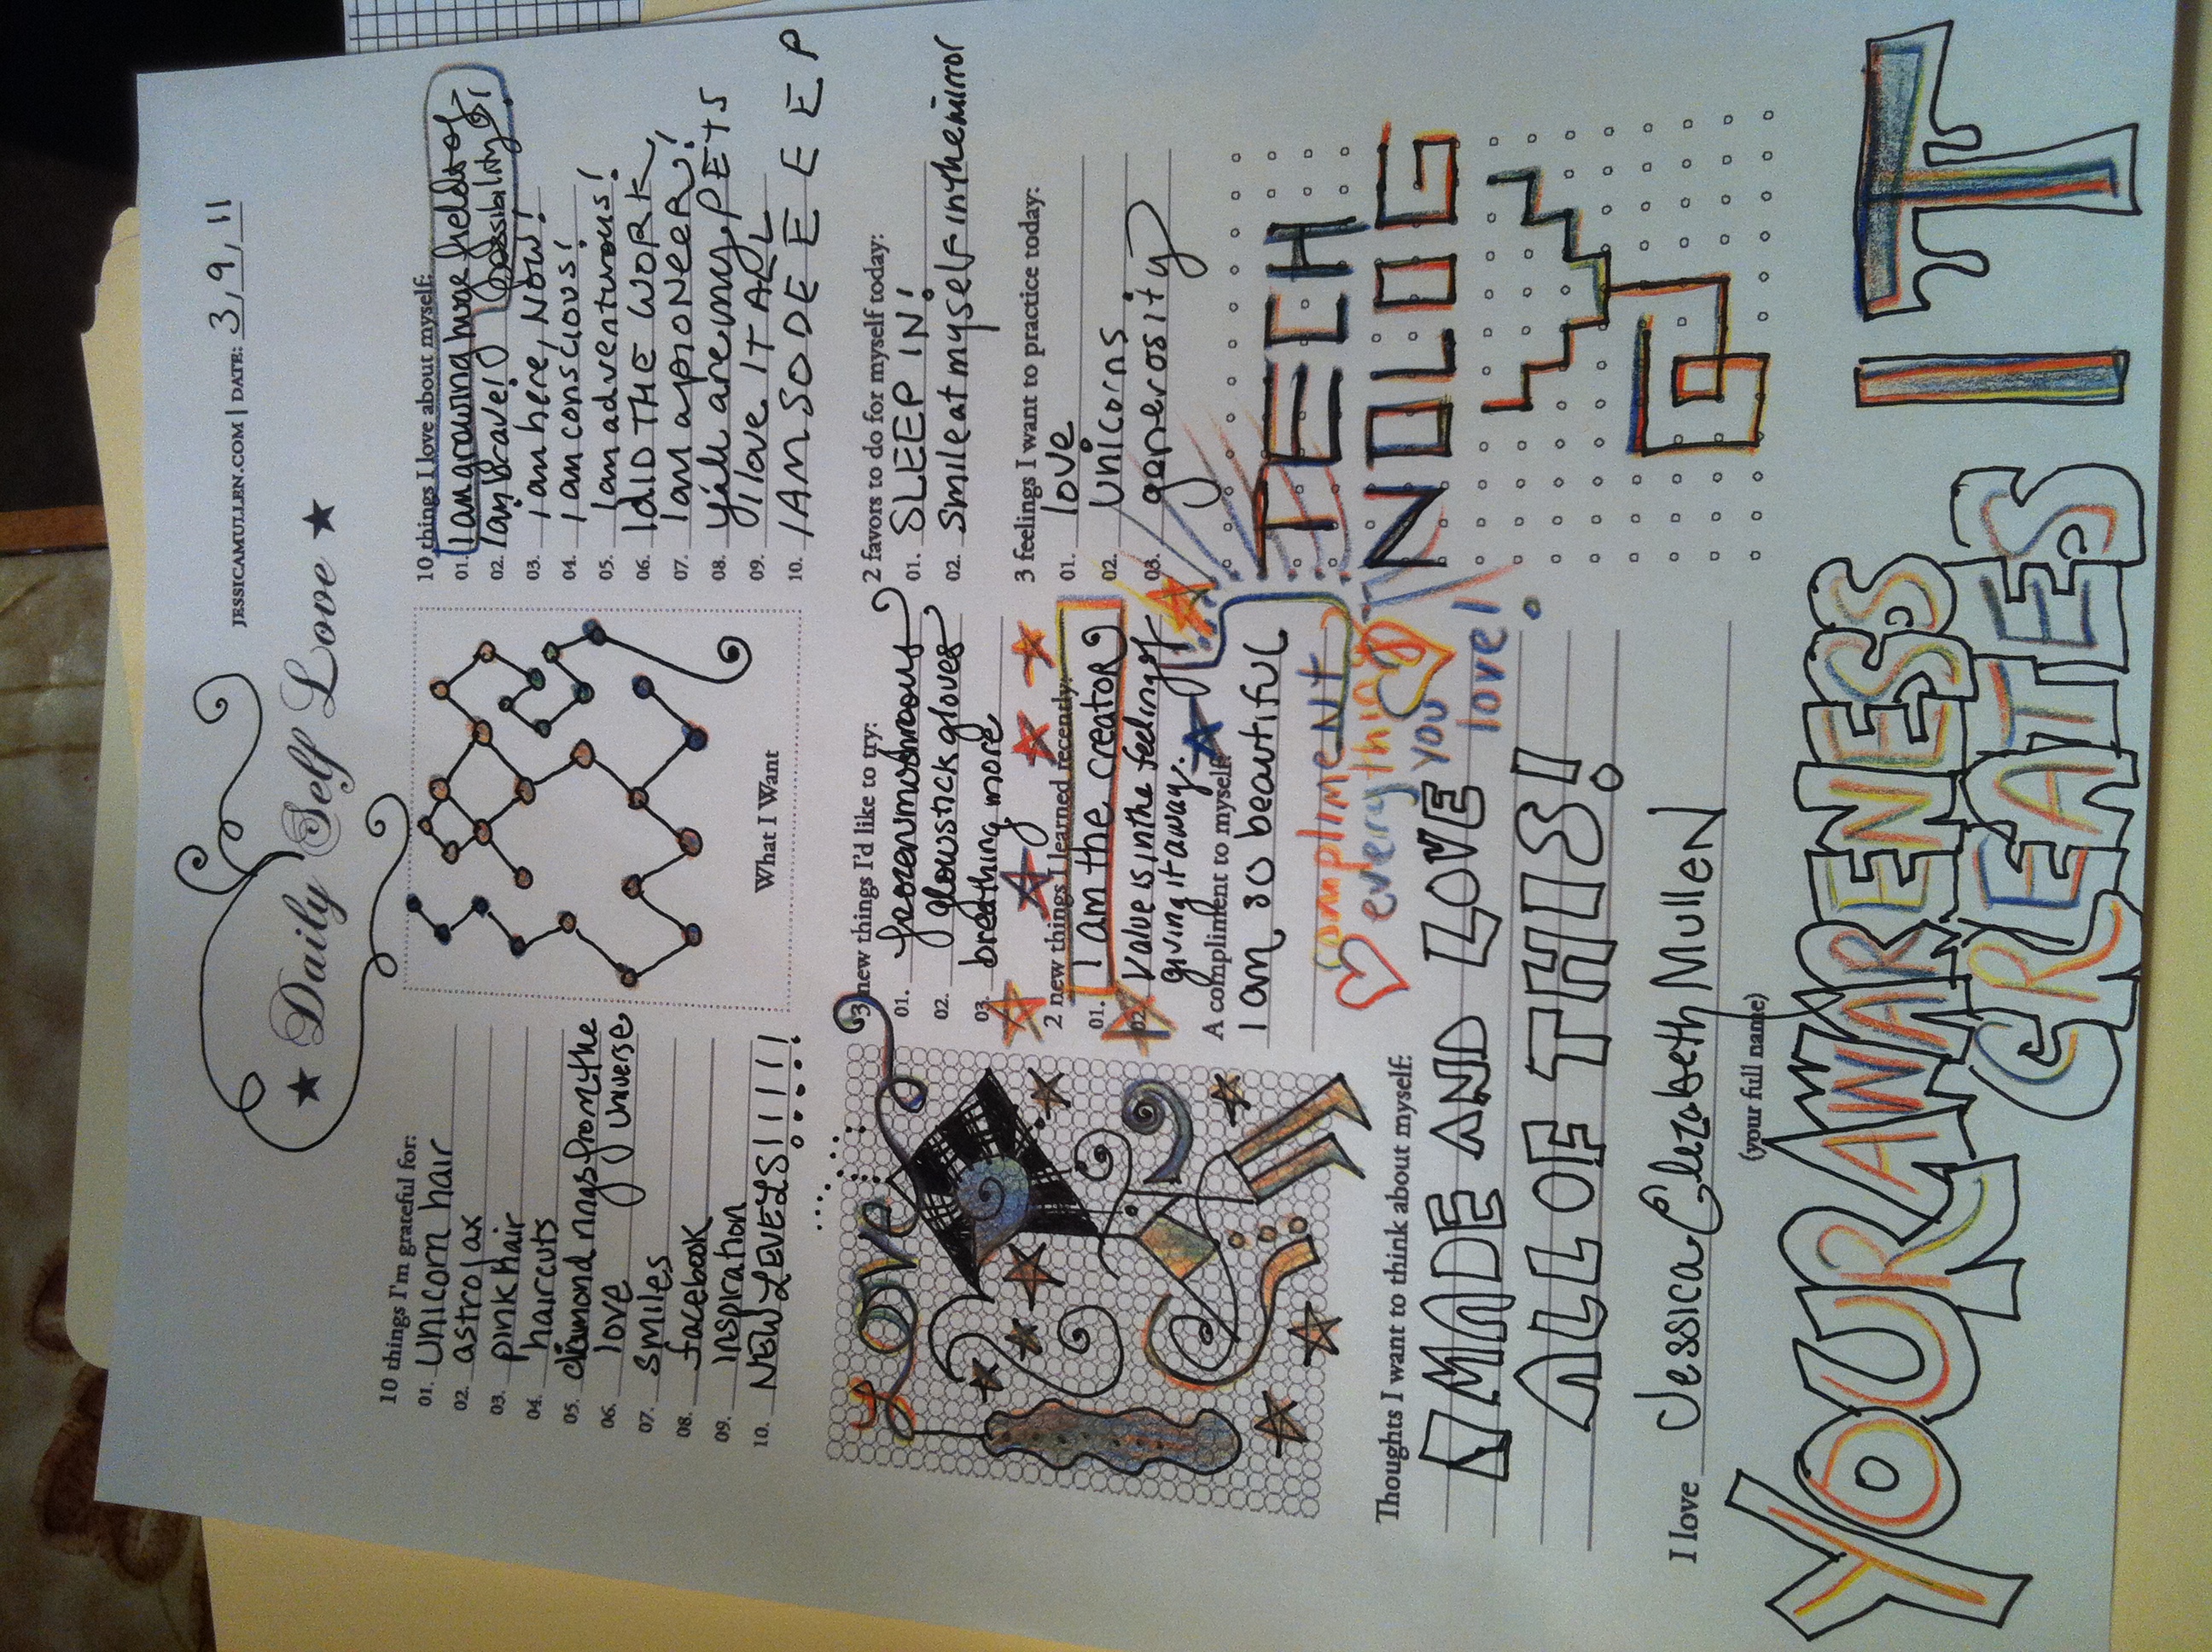 JESSICAMULLEN.COM | DATE: 3, 9, 11
★ Daily Self Love ★
10 things I'm grateful for:
01. Unicorn hair
02. astrolax
03. pink hair
04. haircuts
05. diamond rings from the
universe
06. love
07. smiles
08. facebook
09. inspiration
10. NEW LEVELS!!!!!
What I Want
10 things I love about myself:
01. I am growing huge fields of
possibility!
02. I am brave!
03. I am here, NOW!
04. I am conscious!
05. I am adventurous!
06. I dID THE WORK,
07. I am a pioNeeR!
08. yiLL are my PETS
09. I love IT ALL
10. I AM SO DEEEEEP
Love
3 new things I'd like to try:
01.
02. glowstick gloves
03. breathing more
2 new things I learned recently:
01. I am the creator
02. Value is in the feeling of
giving it away.
A compliment to myself:
I am so beautiful
compliment
everything
you
love!
2 favors to do for myself today:
01. SLEEP IN!
02. Smile at myself in the mirror
3 feelings I want to practice today:
01. love
02. Unicorns
03. generosity
TECH
NOLOG
Y
Thoughts I want to think about myself:
I MADE AND LOVE
ALL OF THIS!
I love Jessica Elizabeth Mullen
(your full name)
YOUR AWARENESS
CREATES IT